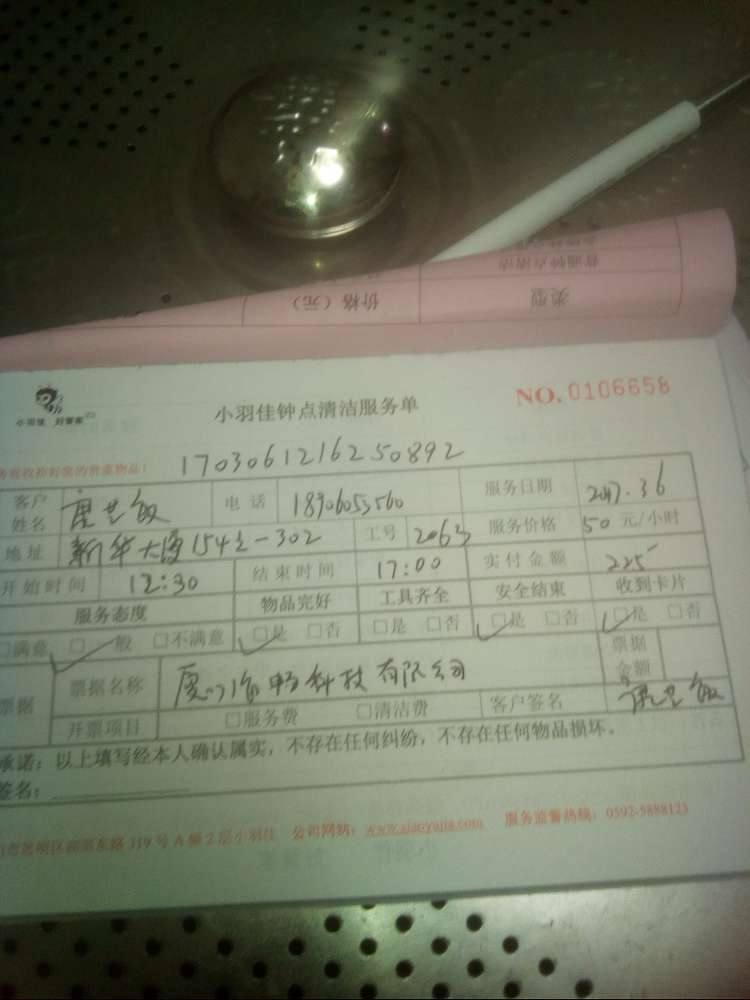 普通钟点清洁
类型 价格（元）
小羽佳 好管家
小羽佳钟点清洁服务单 NO. 0106658
1703061216250892
客户姓名 电话 服务日期 2017.3.6
地址 新华大厦 302 工号 2063 服务价格 50 元/小时
开始时间 12:30 结束时间 17:00 实付金额 225
服务态度 物品完好 工具齐全 安全结束 收到卡片
□满意 □一般 □不满意 □是 □否 □是 □否 □是 □否 □是 □否
票据 票据名称 有限公司 票据金额
开票项目 □服务费 □清洁费 客户签名
承诺：以上填写经本人确认属实，不存在任何纠纷，不存在任何物品损坏。
签名：
319号A幢2层小羽佳 公司网站：www.xiaoyujia.com 服务监督热线：0592-5888123